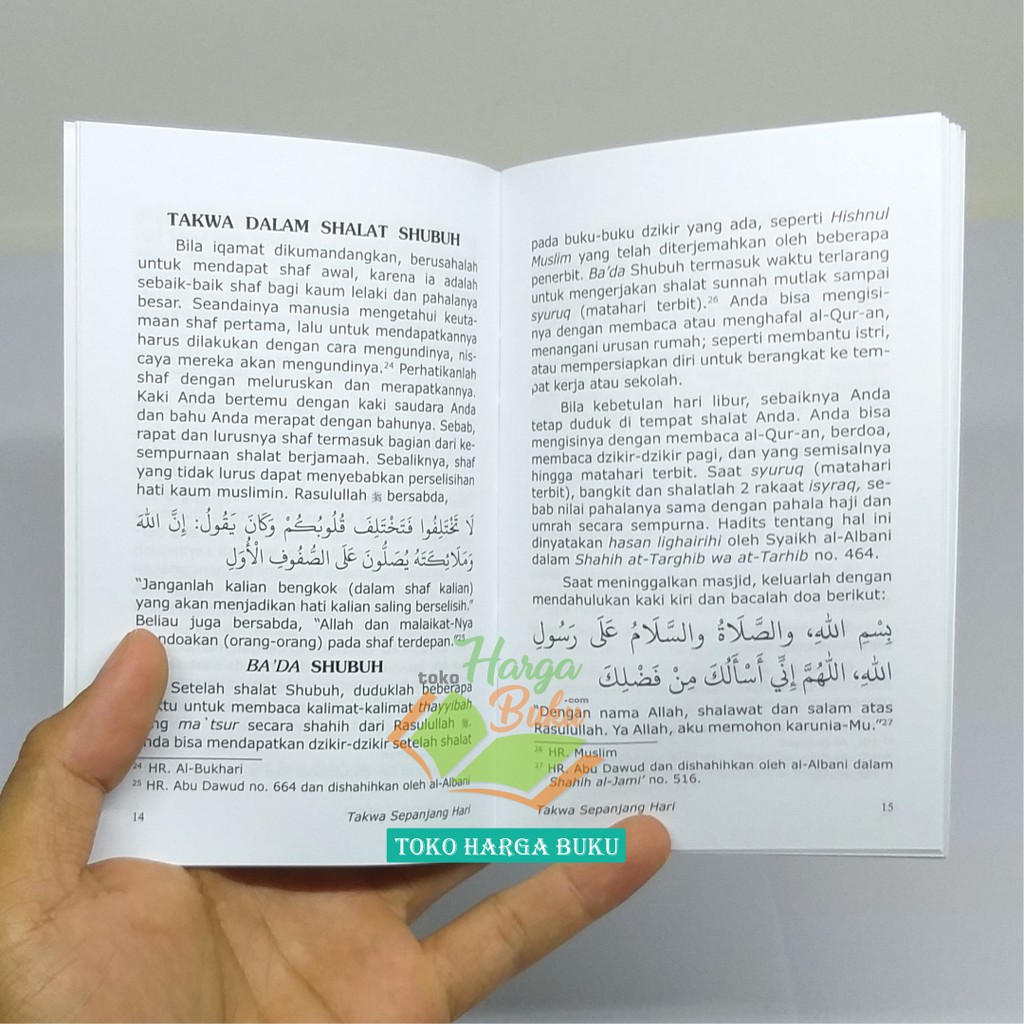 TAKWA DALAM SHALAT SHUBUH
Bila iqamat dikumandangkan, berusahalah
untuk mendapat shaf awal, karena ia adalah
sebaik-baik shaf bagi kaum lelaki dan pahalanya
besar. Seandainya manusia mengetahui keuta-
maan shaf pertama, lalu untuk mendapatkannya
harus dilakukan dengan cara mengundinya, nis-
caya mereka akan mengundinya.²⁴ Perhatikanlah
shaf dengan meluruskan dan merapatkannya.
Kaki Anda bertemu dengan kaki saudara Anda
dan bahu Anda merapat dengan bahunya. Sebab,
rapat dan lurusnya shaf termasuk bagian dari ke-
sempurnaan shalat berjamaah. Sebaliknya, shaf
yang tidak lurus dapat menyebabkan perselisihan
hati kaum muslimin. Rasulullah ﷺ bersabda,
لَا تَخْتَلِفُوا فَتَخْتَلِفَ قُلُوبُكُمْ وَكَانَ يَقُولُ: إِنَّ اللهَ
وَمَلَائِكَتَهُ يُصَلُّونَ عَلَى الصُّفُوفِ الْأُوَلِ
"Janganlah kalian bengkok (dalam shaf kalian)
yang akan menjadikan hati kalian saling berselisih."
Beliau juga bersabda, "Allah dan malaikat-Nya
ndoakan (orang-orang) pada shaf terdepan."²⁵
BA'DA SHUBUH
Setelah shalat Shubuh, duduklah beberapa
ktu untuk membaca kalimat-kalimat thayyibah
ng ma`tsur secara shahih dari Rasulullah ﷺ.
nda bisa mendapatkan dzikir-dzikir setelah shalat
²⁴ HR. Al-Bukhari
²⁵ HR. Abu Dawud no. 664 dan dishahihkan oleh al-Albani
14 Takwa Sepanjang Hari
pada buku-buku dzikir yang ada, seperti Hishnul
Muslim yang telah diterjemahkan oleh beberapa
penerbit. Ba'da Shubuh termasuk waktu terlarang
untuk mengerjakan shalat sunnah mutlak sampai
syuruq (matahari terbit).²⁶ Anda bisa mengisi-
nya dengan membaca atau menghafal al-Qur-an,
menangani urusan rumah; seperti membantu istri,
atau mempersiapkan diri untuk berangkat ke tem-
pat kerja atau sekolah.
Bila kebetulan hari libur, sebaiknya Anda
tetap duduk di tempat shalat Anda. Anda bisa
mengisinya dengan membaca al-Qur-an, berdoa,
membaca dzikir-dzikir pagi, dan yang semisalnya
hingga matahari terbit. Saat syuruq (matahari
terbit), bangkit dan shalatlah 2 rakaat isyraq, se-
bab nilai pahalanya sama dengan pahala haji dan
umrah secara sempurna. Hadits tentang hal ini
dinyatakan hasan lighairihi oleh Syaikh al-Albani
dalam Shahih at-Targhib wa at-Tarhib no. 464.
Saat meninggalkan masjid, keluarlah dengan
mendahulukan kaki kiri dan bacalah doa berikut:
بِسْمِ اللهِ، والصَّلَاةُ والسَّلَامُ عَلَى رَسُولِ
اللهِ، اللَّهُمَّ إِنِّي أَسْأَلُكَ مِنْ فَضْلِكَ
"Dengan nama Allah, shalawat dan salam atas
Rasulullah. Ya Allah, aku memohon karunia-Mu."²⁷
²⁶ HR. Muslim
²⁷ HR. Abu Dawud dan dishahihkan oleh al-Albani dalam
Shahih al-Jami' no. 516.
Takwa Sepanjang Hari 15
toko Harga
Buku.com
TOKO HARGA BUKU